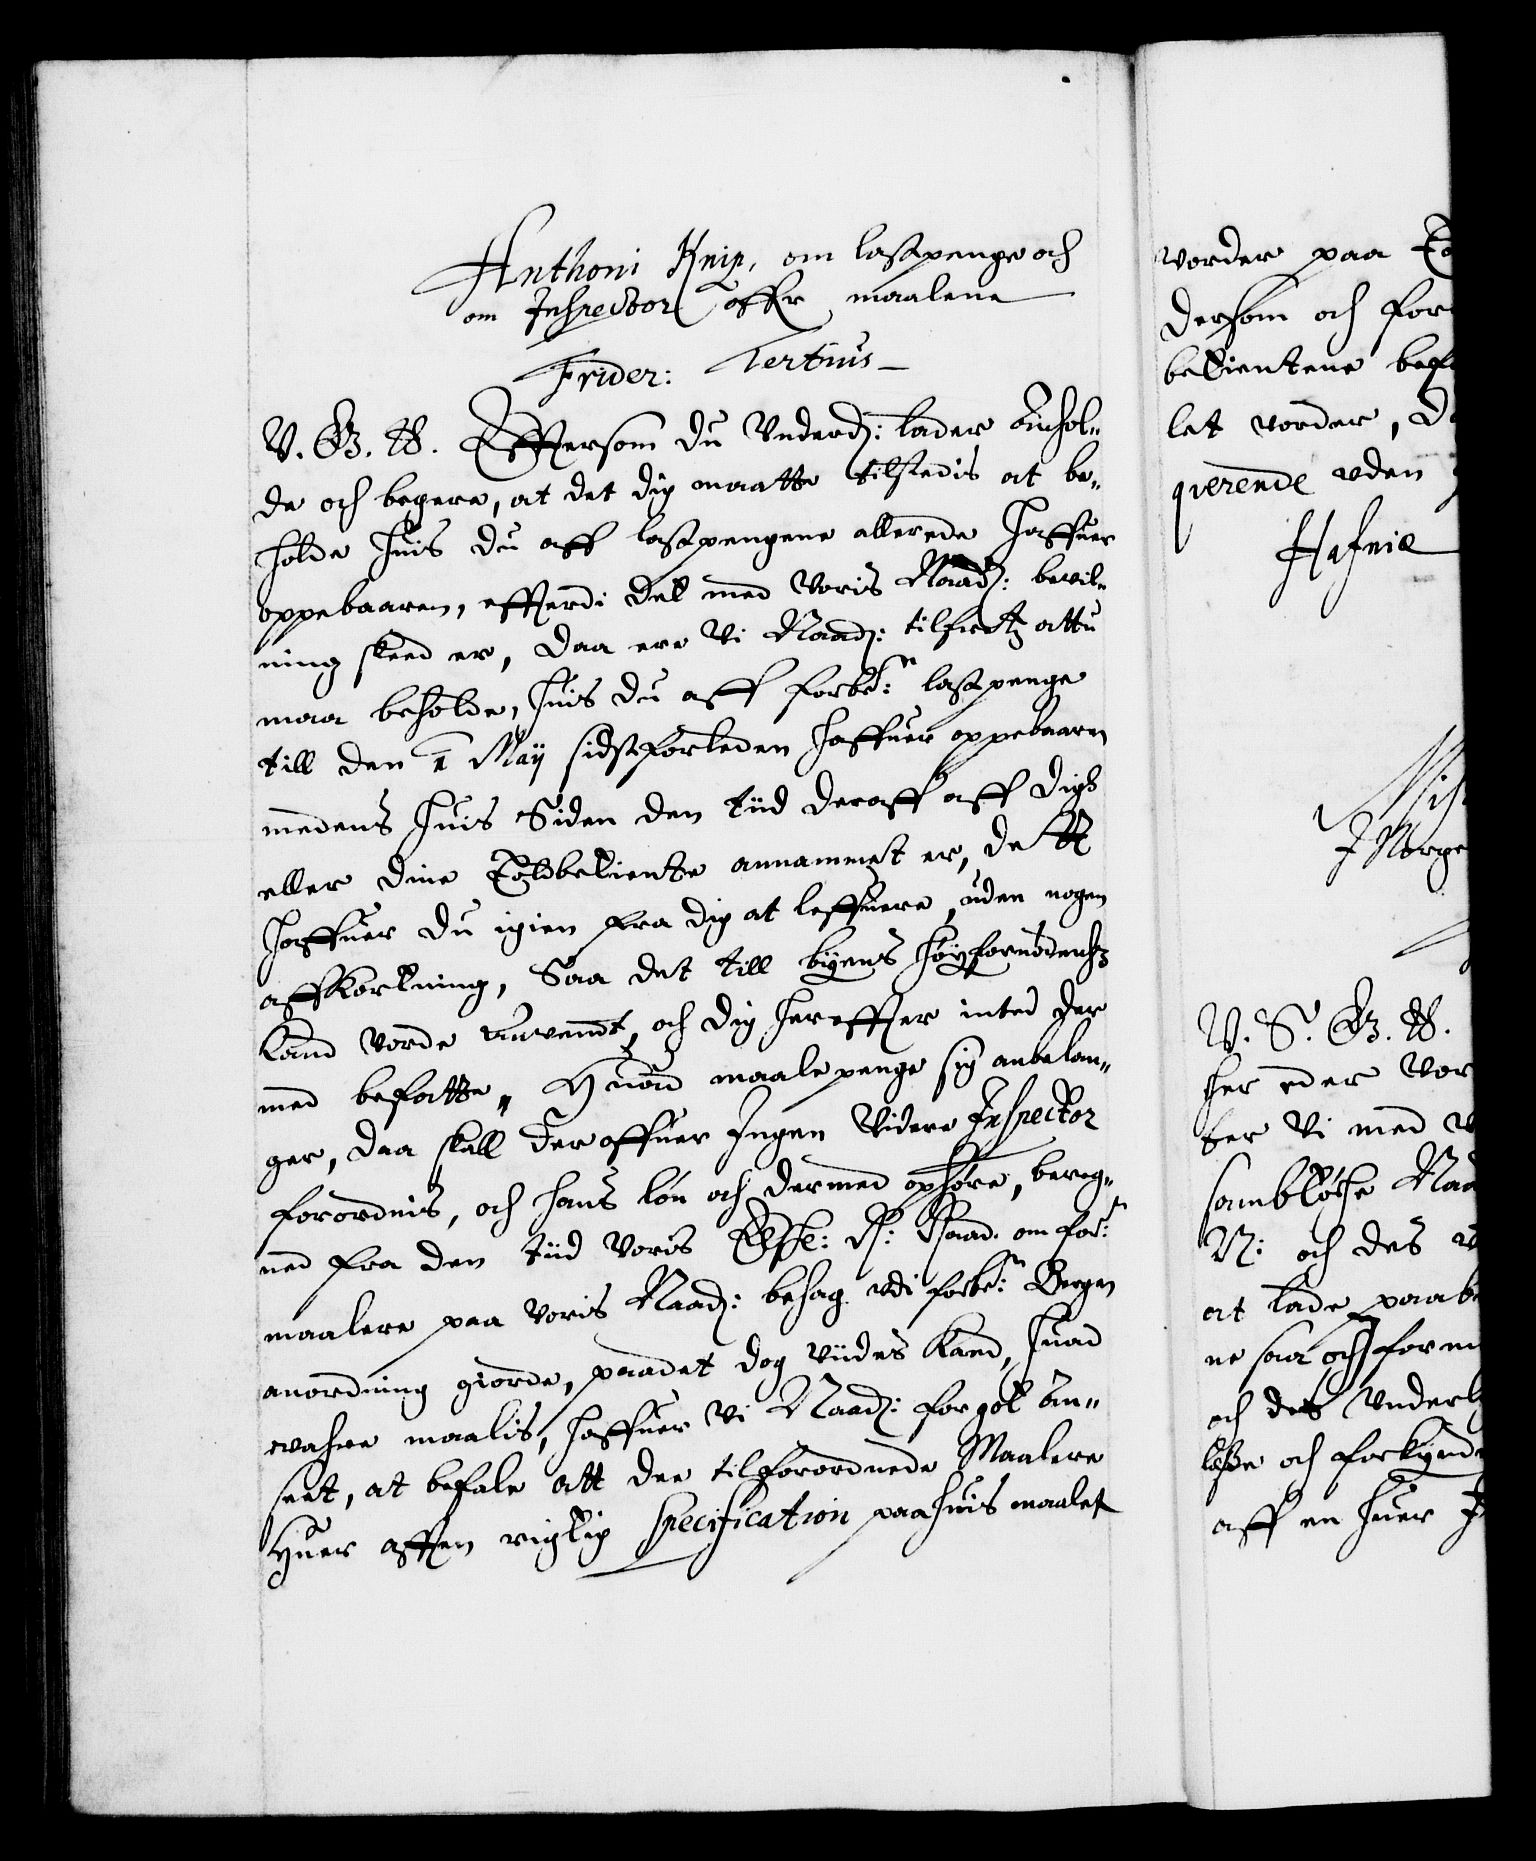 Anthoni Knip, om lastpenge och
om Inspector offr maalene
Frider: Tertius
V. G. T. Effttersom du Underd: lader Anhol¬
de och begere, at det dig maatte tilstedis at be¬
holde huis du aff lastpengene allerede haffuer
oppebaaren, effterdi det med Voris Naad: bevil¬
ning skeed er, daa ere Vi Naad: tilfretz attu
maa beholde, huis du aff forbe:te lastpenge
till den 1 Maij sidstforleden haffuer oppebaaren
medens huis Siden den tiid deraff aff dig
eller dine Toldbetiente annammet er, dett
haffuer du igien fra dig at leffuere, uden nogen
affkortning, Saa det till byens høyfornødenhz
kand vorde anvendt, och dig hereffter inted der
med befatte, Huad maalepenge sig anbelan¬
ger, daa skall der offuer Ingen Videre Inspector
forordnis, och hans løn och dermed ophøre, bereg¬
net fra den tiid Voris Elske: R: Raad. om for:ne
maalere paa Voris Naad: behag udi forbe:te Bergen
anordning giorde, paadet dog viides kand, huad
wahre maalis, haffuer Vi Naad: for got an¬
seet, at befale att dee tilforordnede Maalere
Huer afften rigtig Specification paa huis maalet
vorder paa To
dersom och for
betientene bef
let vorder, D
qverende uden
Hafniæ
I Norge
V. S. G. T.
her eder Vor
ber Vi med
sambtlige Naa
N: och des
at lade paabe
ne saa och form
och det Underl
læse och forkynd
aff en huer